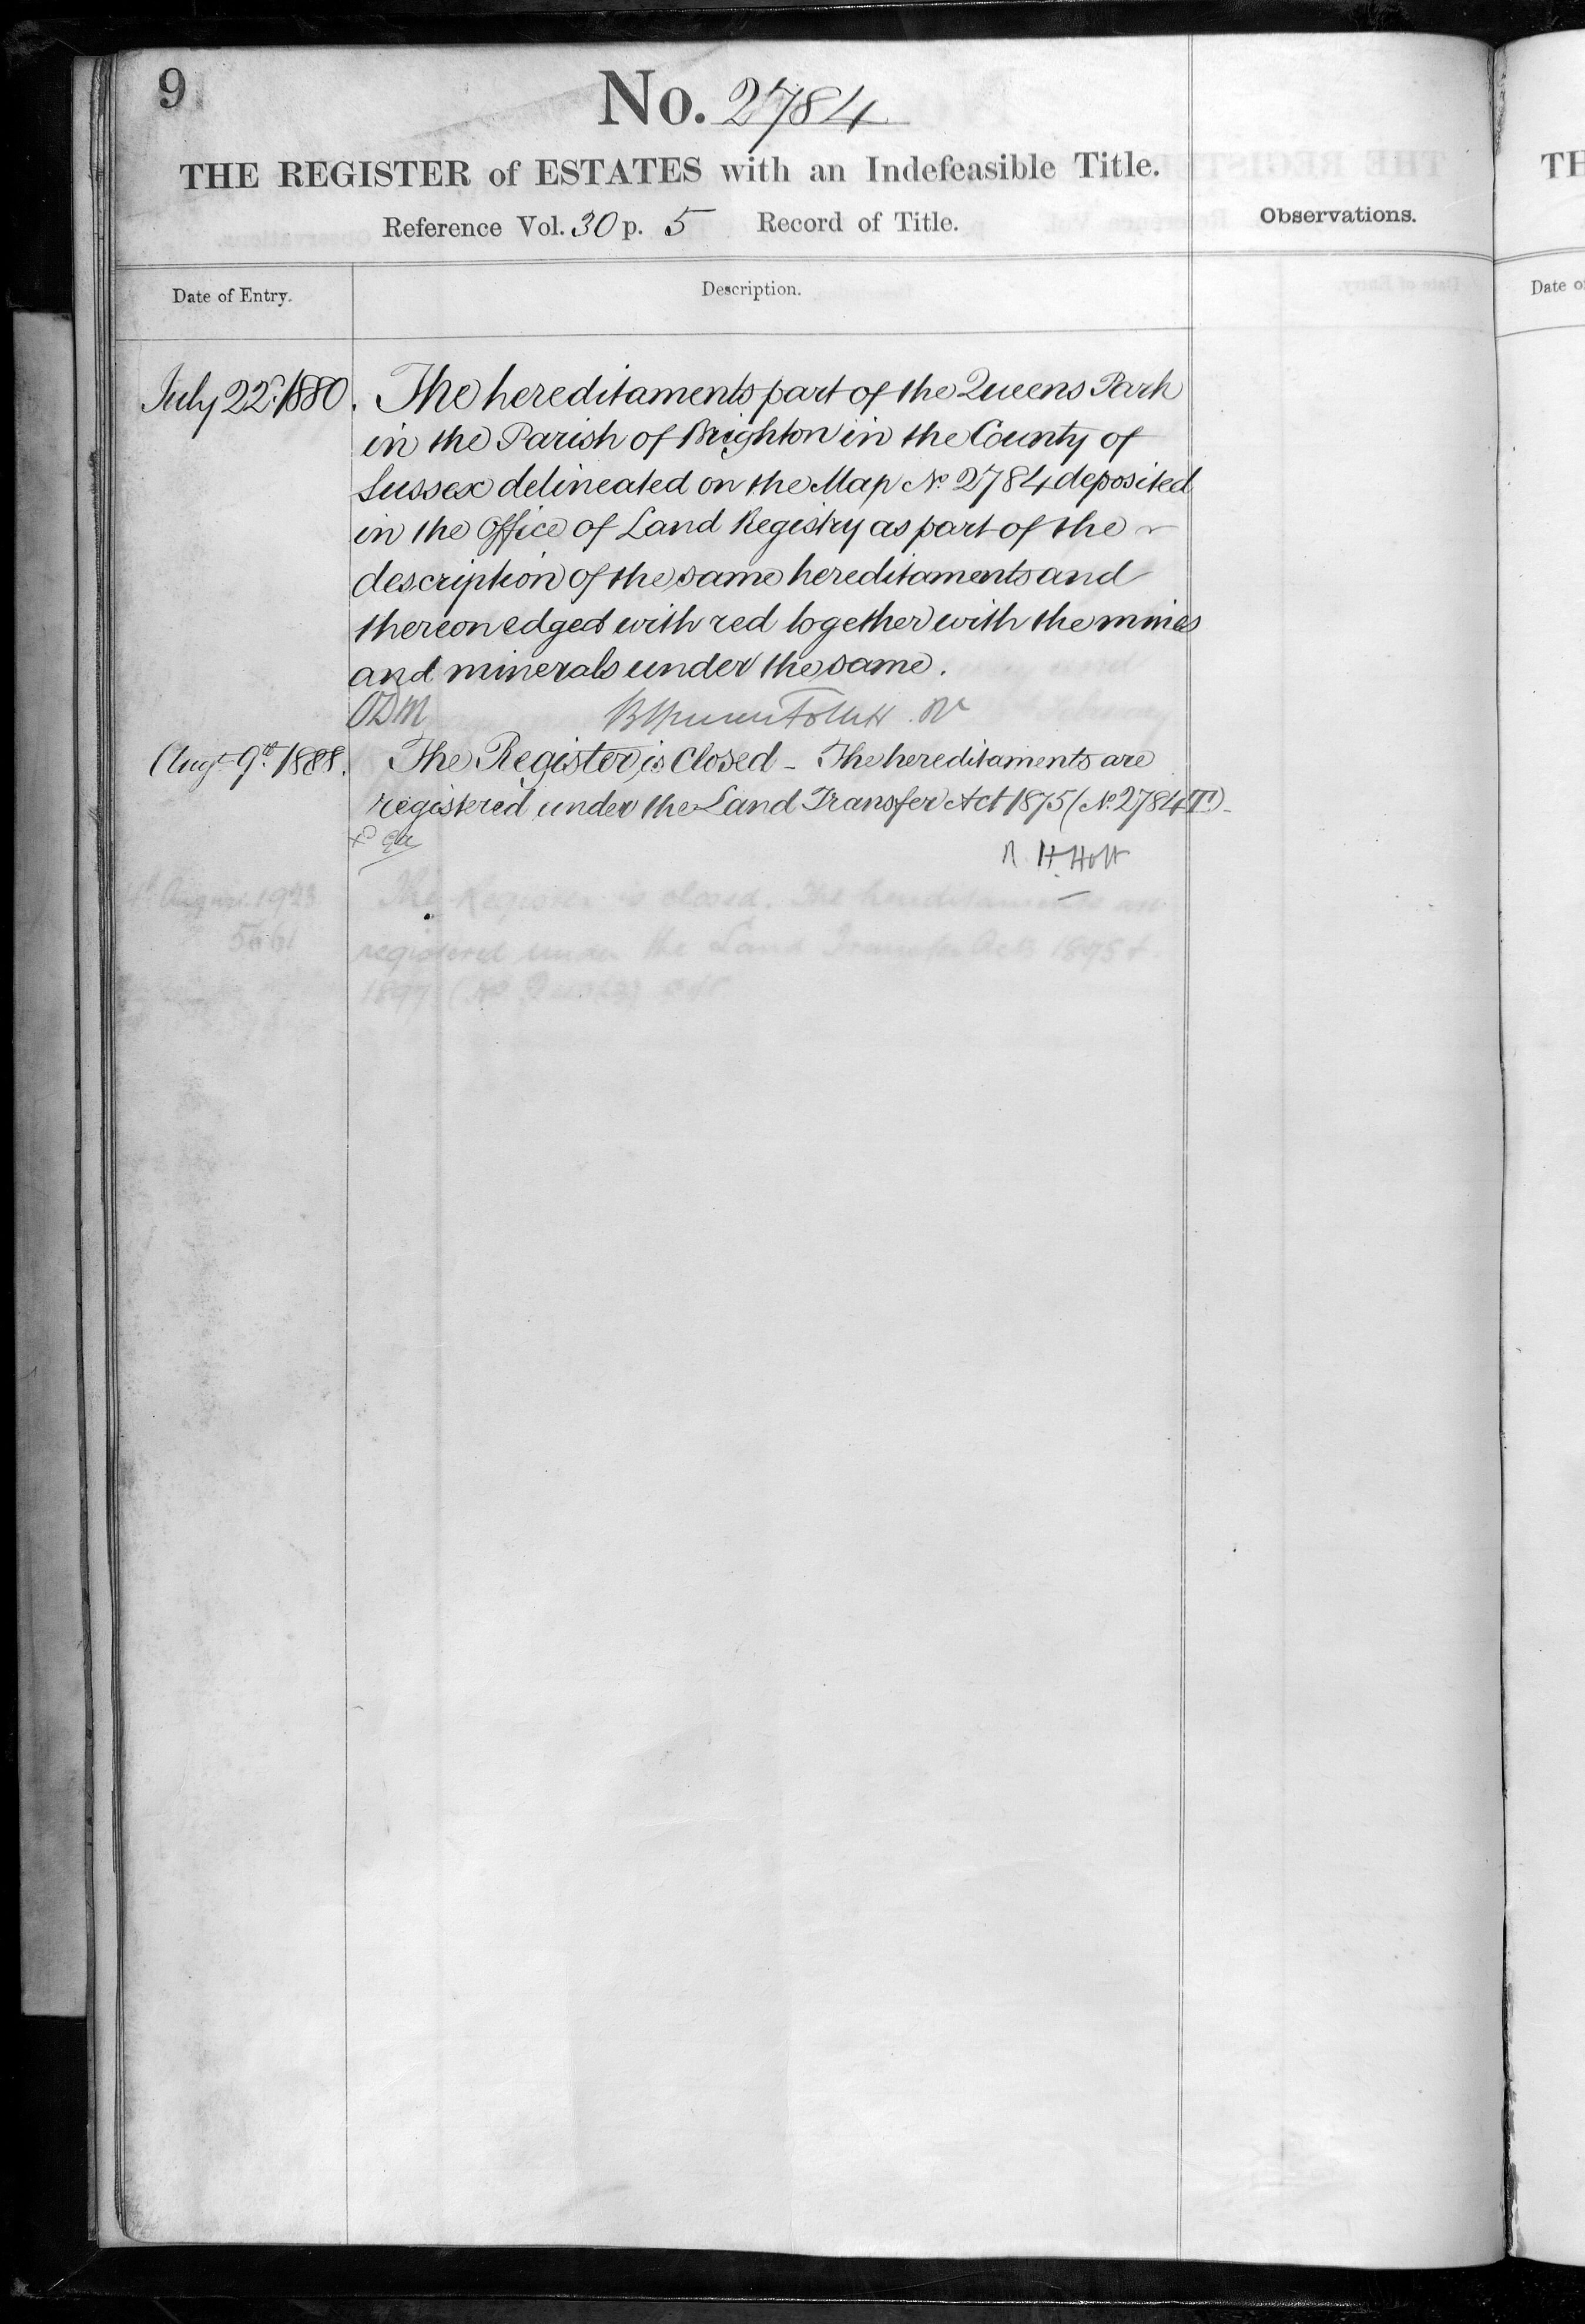 9
No. 2784
THE REGISTER of ESTATES with an Indefeasible Title.
Reference Vol. 30 p. 5 Record of Title.
Observations.
Date of Entry.
Description.
July 22d. 1880. The hereditaments part of the Queens Park
in the Parish of Brighton in the County of
Sussex delineated on the Map No. 2784 deposited
in the Office of Land Registry as part of the
description of the same hereditaments and
thereon edged with red together with the mines
and minerals under the same.
ODM
Augt 9th. 1888. The Register is Closed - The hereditaments are
registered under the Land Transfer Act 1875 (No. 2784 T.) -
R. H. Holt
August 1923 The Register is closed. The hereditaments are
registered under the Land Transfer Acts 1875 &
1897 (No
TH
Date o